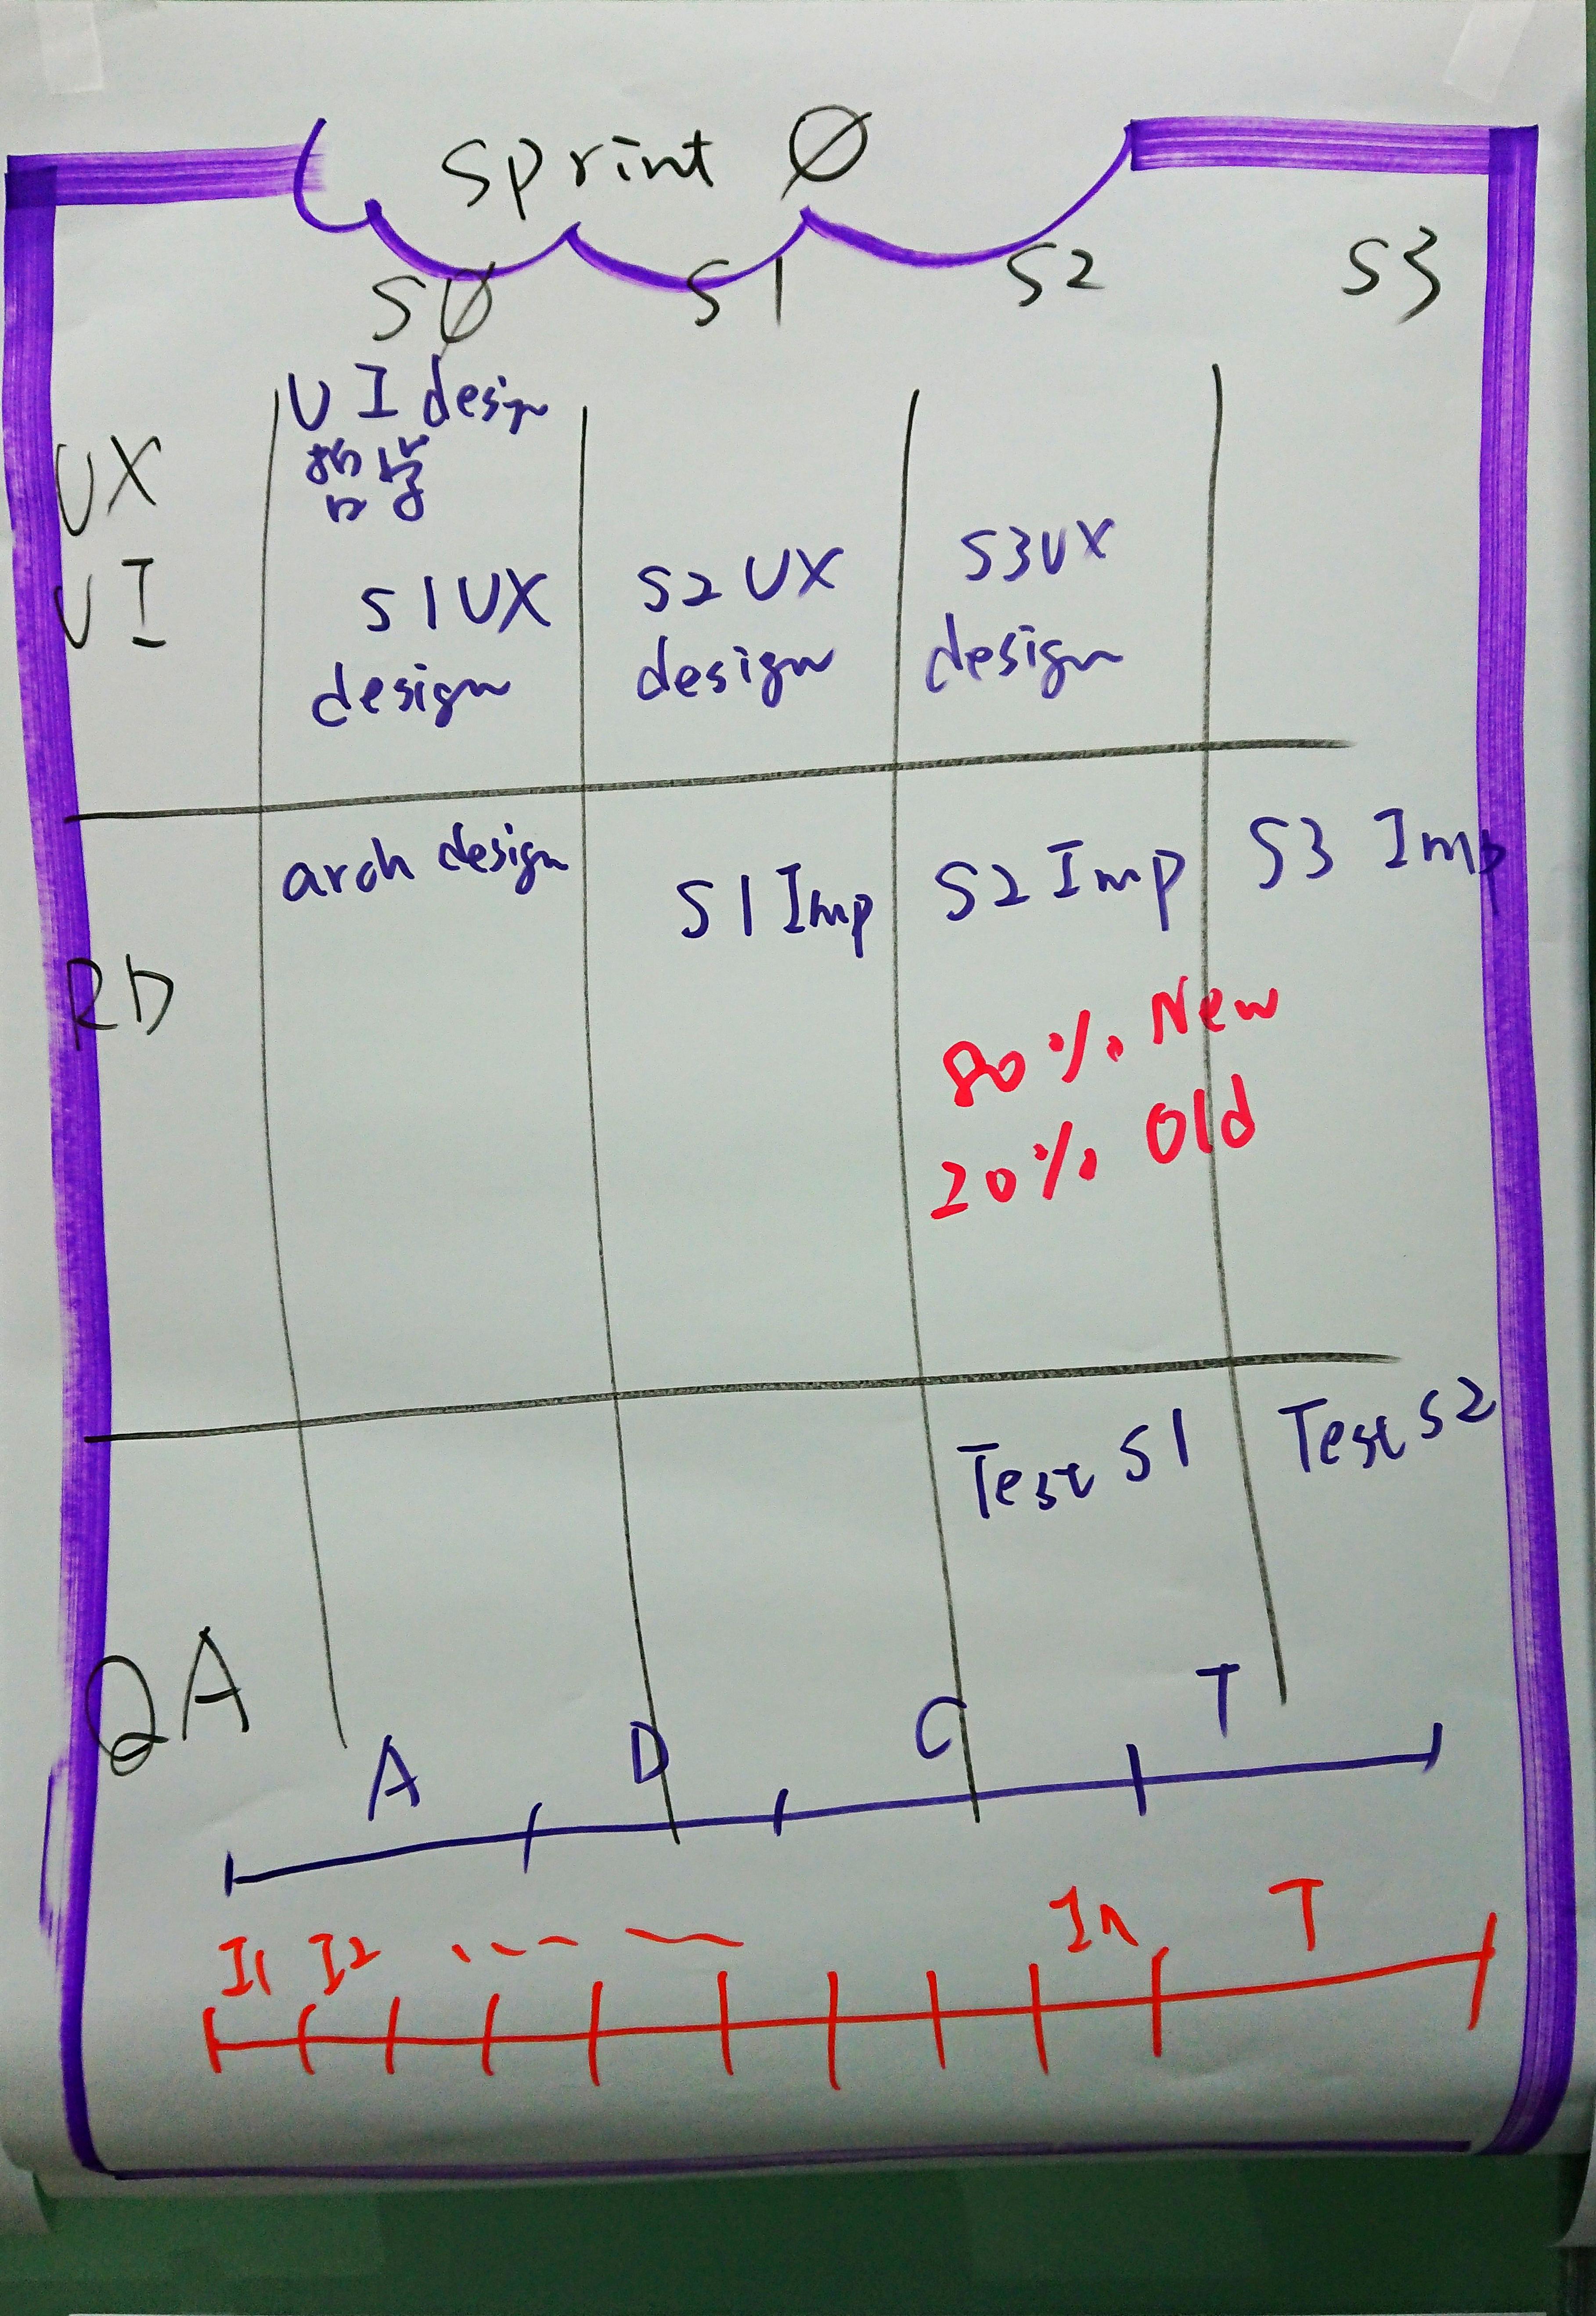 Sprint Ø
SØ S1 S2 S3
UX
UI
UI design
哲學
S1 UX
design
S2 UX
design
S3 UX
design
RD
arch design
S1 Imp
S2 Imp
S3 Imp
80% New
20% Old
QA
Test S1
Test S2
A D C T
I1 I2 In T